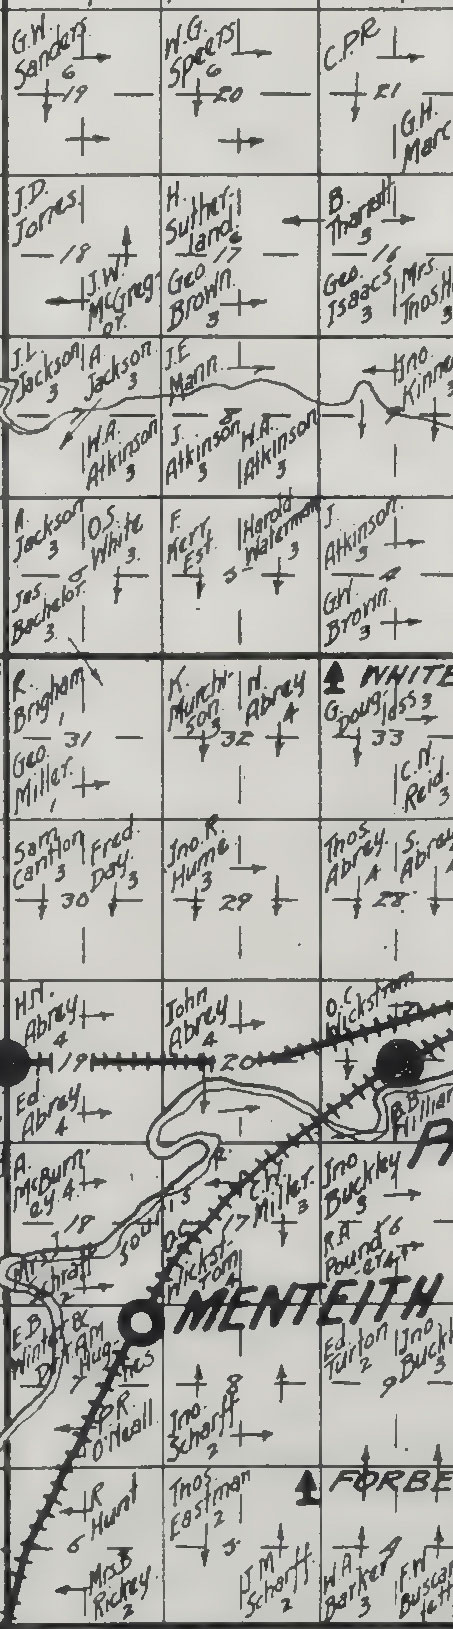 G.W.
Sanders
6
19
W.G.
Speers
6
20
C.P.R
21
G.H.
Marc
J.D.
Jorres.
18
J.W.
McGreg-
or.
H.
Suther-
land.
6
17
Geo
Brown.
3
B.
Tharratt
3
16
Geo.
Isaacs
3
Mrs.
Thos H
3
J.L.
Jackson
3
A.
Jackson.
3
W.A.
Atkinson
3
J.E
Mann
8
J.
Atkinson
3
W.A.
Atkinson
3
Jno.
Kinne
3
A.
Jackson
3
O.S.
White
3.
Jas.
Bachelor.
3.
F.
Kerr
Est.
5
Harold
Waterman
3
J.
Atkinson.
3
4
G.W.
Brown.
3
R.
Brigham
1
31
Geo
Miller.
1
K.
Murchi-
son.
3
32
N.
Abrey
4
WHITE
G.
Doug-
lass 3
33
C.N.
Reid.
3
Sam
Cantlon
3
Fred.
Day.
3
30
Jno. R.
Hume
3
29
Thos.
Abrey.
4
S.
Abrey
4
28
H.N.
Abrey
4
19
Ed.
Abrey
4
John
Abrey
4
20
O.C.
Wickstrom
B.B.
Hillier
A
A.
McBurn-
ey. 4
18
Mrs J
Schraff
2
Souris
R.
O.C.
Wickst-
rom
4
17
C.W.
Miller.
3
Jno
Buckley
3
16
R.A
Pound
er 4
MENTEITH
E.B
Winter &
Dr. A.M
Hug-
hes
7
P.R.
O'Neall
8
Jno.
Scharff
2
Ed.
Turton
2
Jno
Buck
3
9
R
Hunt
6
Mrs B
Rickey.
2
Thos.
Eastman
2
5
J.M
Scharff.
2
FORBE
W.A
Barker
3
4
F.W
Buscar
lett